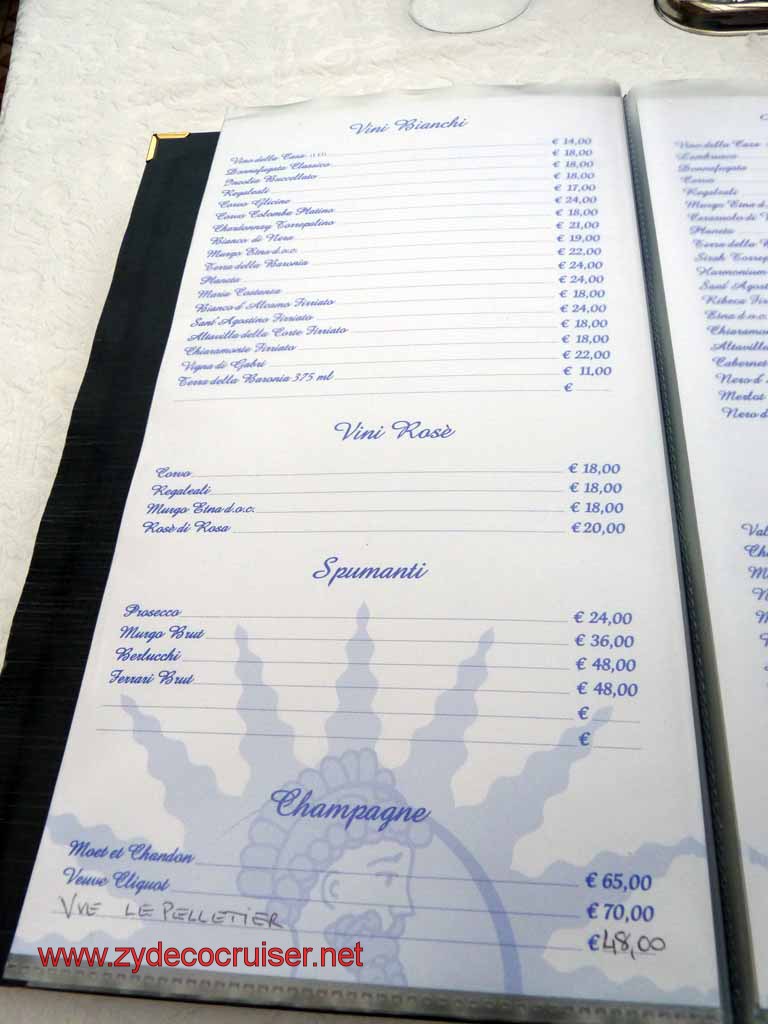 Vini Bianchi
Vino della Casa (1 LT) € 14,00
Donnafugata Classico € 18,00
Incolia Buccellato € 18,00
Regaleali € 18,00
Corvo Glicine € 17,00
Corvo Colomba Platino € 24,00
Chardonnay Torrepalino € 18,00
Bianco di Nera € 21,00
Murgo Etna d.o.c. € 19,00
Terra della Baronia € 22,00
Planeta € 24,00
Maria Costanza € 24,00
Bianco d'Alcamo Firriato € 18,00
Sant'Agostino Firriato € 24,00
Altavilla della Corte Firriato € 18,00
Chiaramonte Firriato € 18,00
Vigna di Gabri € 22,00
Terra della Baronia 375 ml € 11,00
€
Vini Rosè
Corvo € 18,00
Regaleali € 18,00
Murgo Etna d.o.c. € 18,00
Rosè di Rosa € 20,00
Spumanti
Prosecco € 24,00
Murgo Brut € 36,00
Berlucchi € 48,00
Ferrari Brut € 48,00
€
€
Champagne
Moet et Chandon € 65,00
Veuve Cliquot € 70,00
VVE LE PELLETIER € 48,00
www.zydecocruiser.net
Vino della Casa
Lambrusco
Donnafugata
Corvo
Regaleali
Murgo Etna d.
Cerasuolo di V
Planeta
Terra della B
Sirah Torrep
Harmonium
Sant'Agost
Ribeca Fir
Etna d.o.c.
Chiaramont
Altavilla
Cabernet
Nero d'
Merlot
Nero d